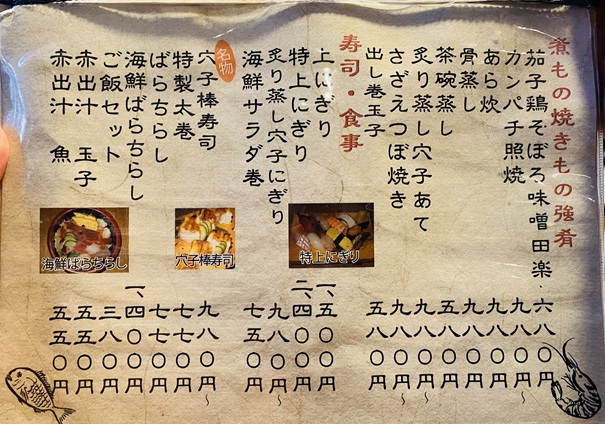 煮もの焼きもの強肴
茄子鶏そぼろ味噌田楽 六八〇円
カンパチ照焼 九八〇円〜
あら炊 九八〇円
骨蒸し 九八〇円
茶碗蒸し 五八〇円
炙り蒸し穴子あて 九八〇円〜
さざえつぼ焼き 九八〇円〜
出し巻玉子 五八〇円
寿司・食事
上にぎり 一、五〇〇円
特上にぎり 二、四〇〇円
炙り蒸し穴子にぎり 九八〇円〜
海鮮サラダ巻 七五〇円
名物
穴子棒寿司 九八〇円〜
特製太巻 七七〇円
ばらちらし 七七〇円
海鮮ばらちらし 一、四〇〇円
ご飯セット 三八〇円
赤出汁 玉子 五五〇円
赤出汁 魚 五五〇円
特上にぎり
穴子棒寿司
海鮮ばらちらし